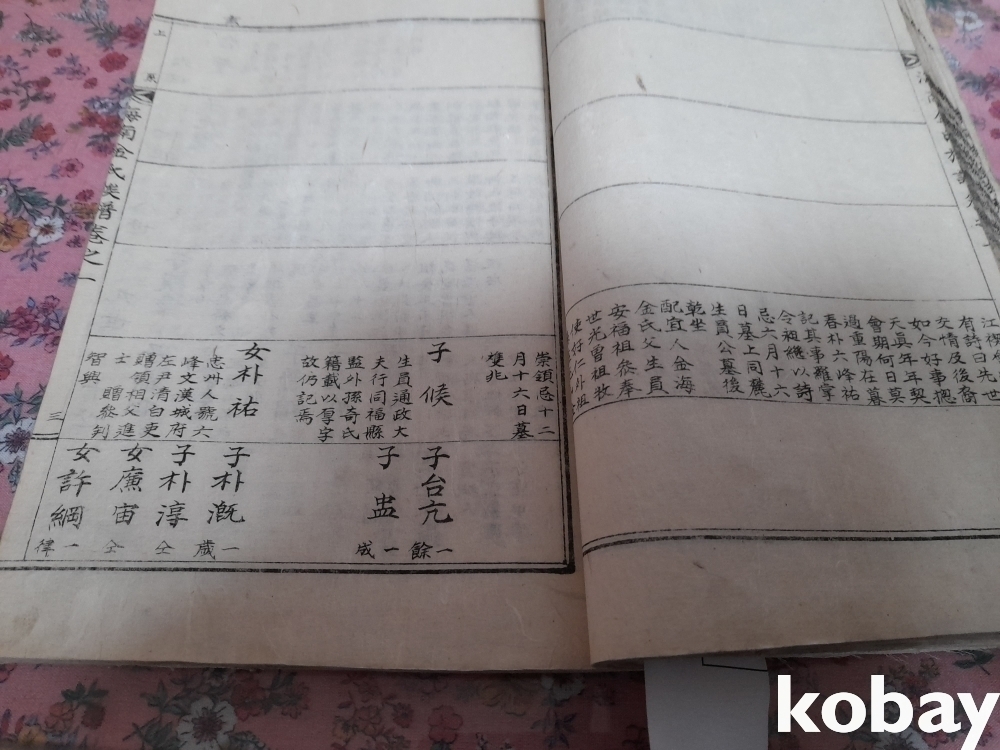 有詩曰先世
交情及後裔
如今好事摠
天眞年年契
會期何日莫
過重陽在暮
春朴六峰祐
記其事雖掌
令祖繼以詩
忌六月十六
日墓上同麓
生員公墓後
乾坐
配宜人金海
金氏父生員
安福祖叅奉
世光曽祖牧
崇鎮忌十二
月十六日墓
雙兆
子候
生員通政大
夫行同福縣
監外孫奇氏
籍載以厚字
故仍記焉
女朴祐
忠州人號六
峰文漢城府
左尹清白吏
贈領相父進
士贈叅判
智興
子台亢
餘一
子蛊
咸一
子朴漑
歲一
子朴淳
仝
女廉宙
仝
女許綱
律一
海南金氏雙譜卷之一
三
kobay